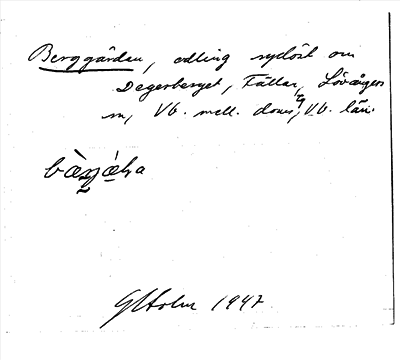 Berggården, odling sydöst om
Degerberget, Fällan, Lövångers
sn, Vb. mell. doms, Vb. län.
G Holm 1947